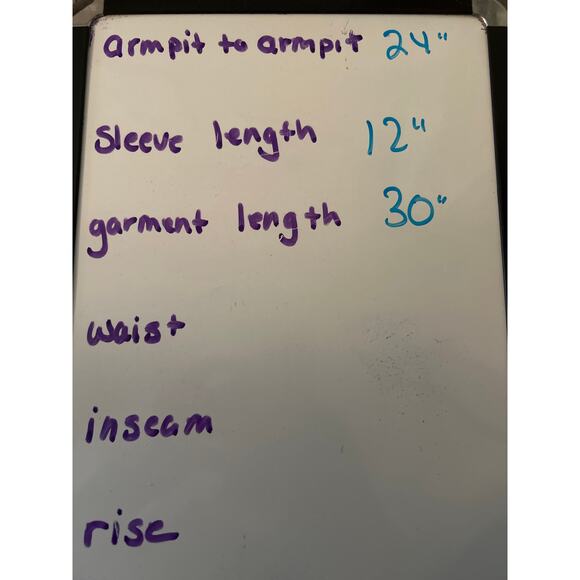 armpit to armpit 24"
sleeve length 12"
garment length 30"
waist
inseam
rise